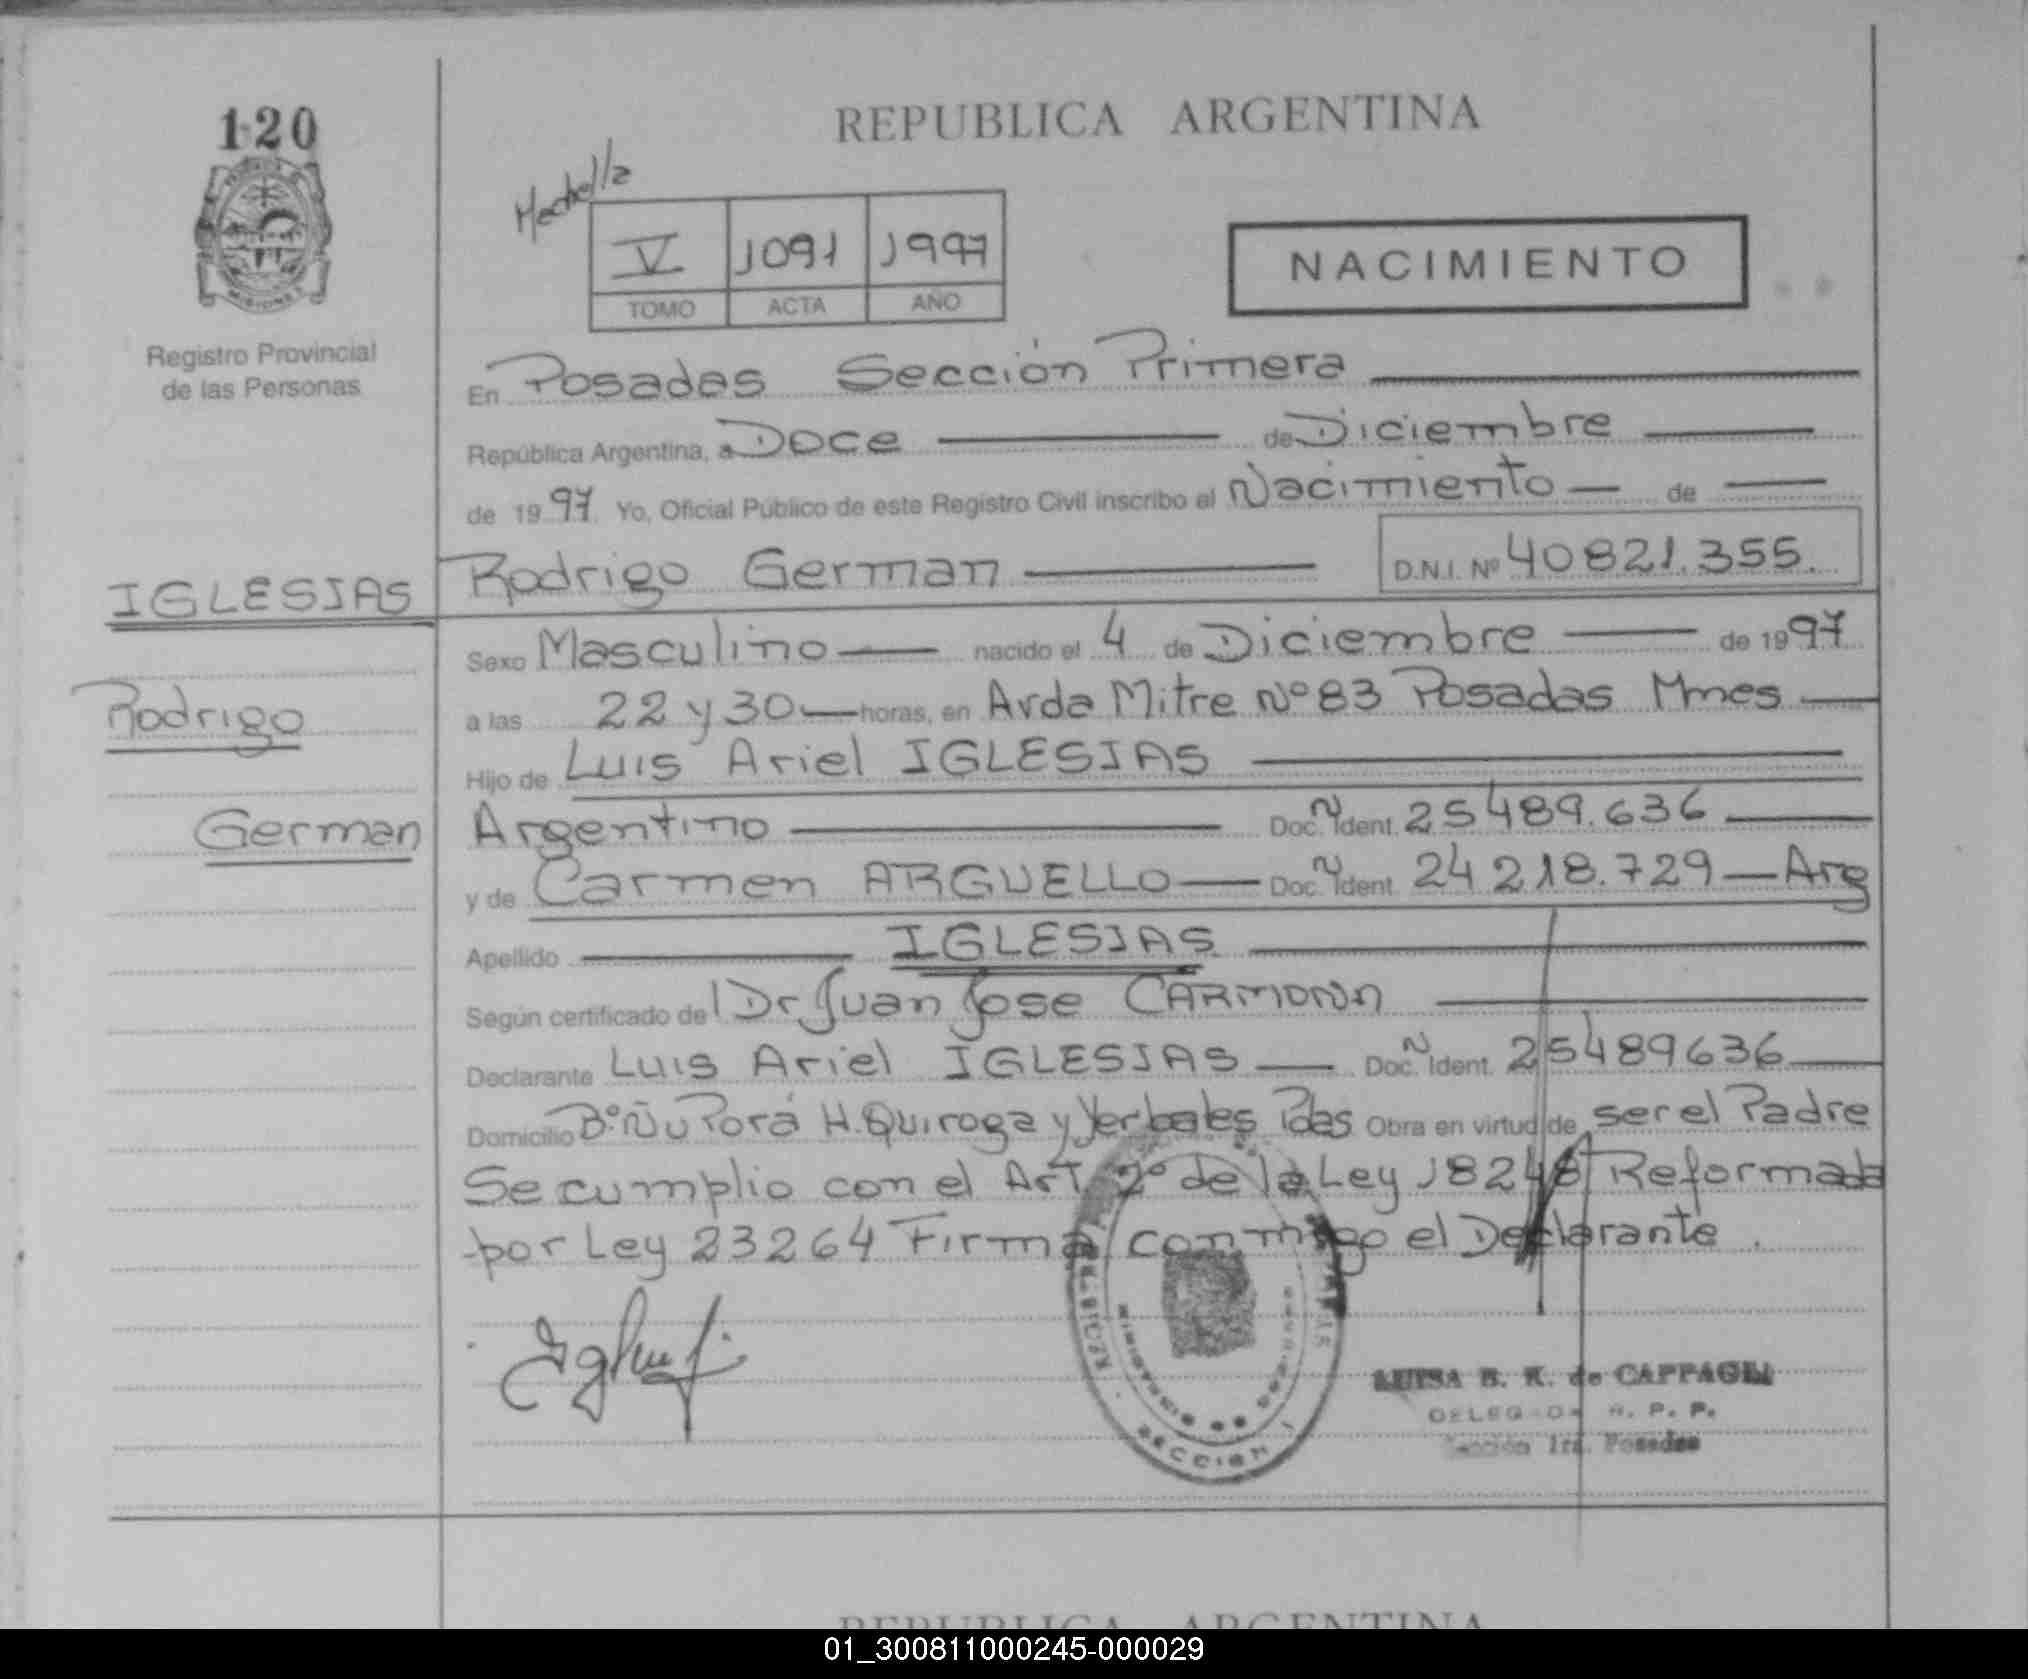 120
REPUBLICA ARGENTINA
V 1091 1997
TOMO ACTA AÑO
NACIMIENTO
MISIONES
Registro Provincial
de las Personas
En Posadas Sección Primera
República Argentina, a Doce de Diciembre
de 1997 Yo, Oficial Público de este Registro Civil inscribo al Nacimiento de
IGLESIAS Rodrigo German D.N.I. Nº 40821.355.
Sexo Masculino nacido el 4 de Diciembre de 1997
Rodrigo
a las 22 y 30 horas, en Avda Mitre Nº 83 Posadas Mnes
Hijo de Luis Ariel IGLESIAS
German
Argentino Doc. N Ident. 25489.636
y de Carmen ARGUELLO Doc. N Ident. 24218.729 Arg
Apellido IGLESIAS
Según certificado del Dr Juan Jose CARMONA
Declarante Luis Ariel IGLESIAS Doc. N Ident. 25489636
Domicilio Bº Ñu Porá H. Quiroga y Yerbales Pdas Obra en virtud de ser el Padre
Se cumplio con el Art 2º de la Ley 18248 Reformada
por Ley 23264 Firma conmigo el Declarante.
LUISA B. K. de CAPPAGLI
DELEGADA R. P. P.
Sección 1ra. Posadas
SECCION 1
REPUBLICA ARGENTINA
01_300811000245-000029